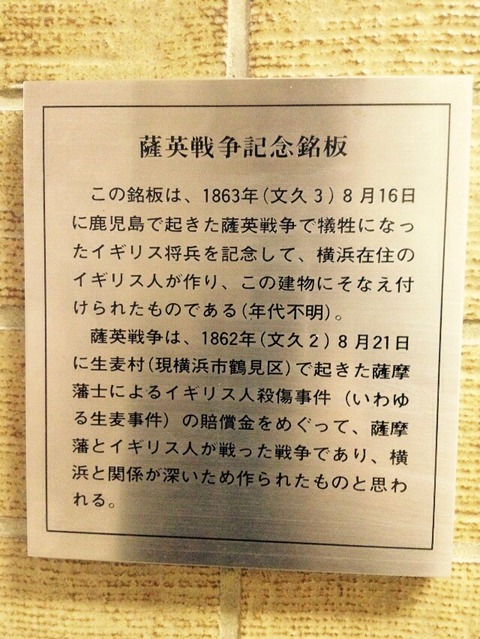 薩英戦争記念銘板
この銘板は、1863年(文久3)8月16日
に鹿児島で起きた薩英戦争で犠牲になっ
たイギリス将兵を記念して、横浜在住の
イギリス人が作り、この建物にそなえ付
けられたものである(年代不明)。
薩英戦争は、1862年(文久2)8月21日
に生麦村(現横浜市鶴見区)で起きた薩摩
藩士によるイギリス人殺傷事件(いわゆ
る生麦事件)の賠償金をめぐって、薩摩
藩とイギリス人が戦った戦争であり、横
浜と関係が深いため作られたものと思わ
れる。